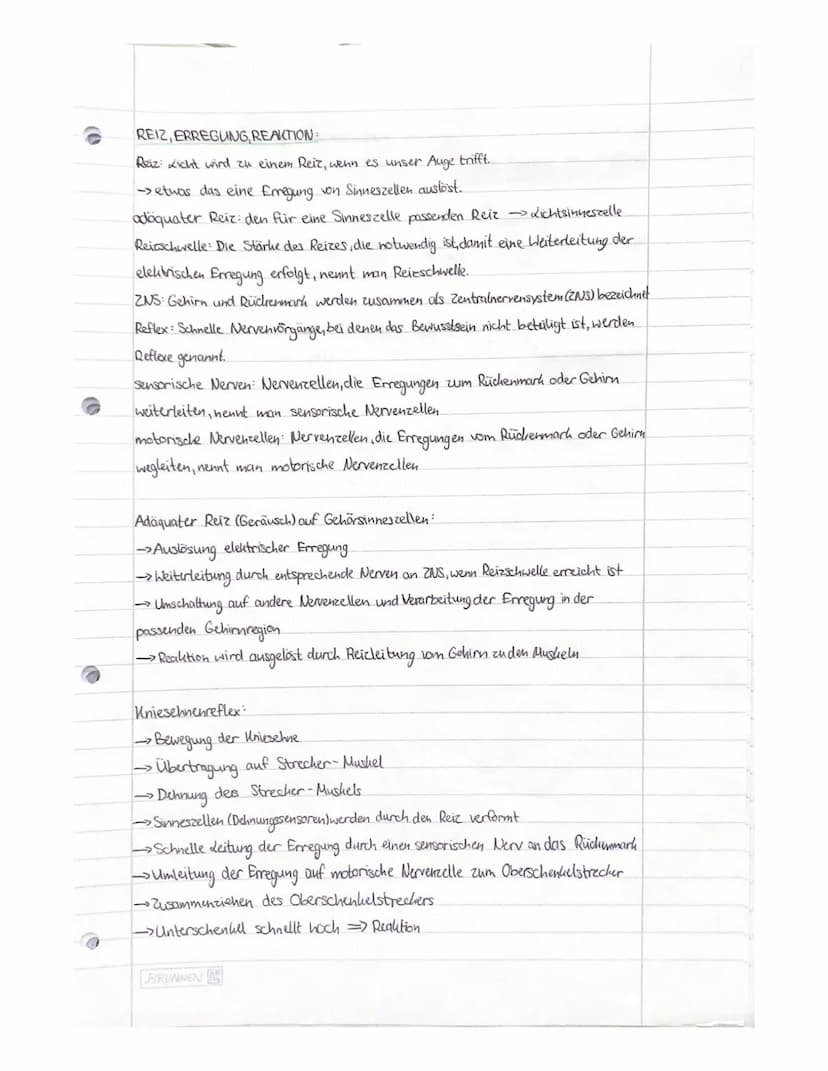 REIZ, ERREGUNG, REAKTION:
Reiz: Licht wird zu einem Reiz, wenn es unser Auge trifft.
→ etwas das eine Erregung von Sinneszellen auslöst.
adäquater Reiz: den für eine Sinneszelle passenden Reiz → Lichtsinneszelle
Reizschwelle: Die Stärke des Reizes, die notwendig ist, damit eine Weiterleitung der
elektrischen Erregung erfolgt, nennt man Reizschwelle.
ZNS: Gehirn und Rückenmark werden zusammen als Zentralnervensystem (ZNS) bezeichnet
Reflex: Schnelle Nervenvorgänge, bei denen das Bewusstsein nicht beteiligt ist, werden
Reflexe genannt.
sensorische Nerven: Nervenzellen, die Erregungen zum Rückenmark oder Gehirn
weiterleiten, nennt man sensorische Nervenzellen
motorische Nervenzellen: Nervenzellen, die Erregungen vom Rückenmark oder Gehirn
wegleiten, nennt man motorische Nervenzellen
Adäquater Reiz (Geräusch) auf Gehörsinneszellen:
→ Auslösung elektrischer Erregung
→ Weiterleitung durch entsprechende Nerven an ZNS, wenn Reizschwelle erreicht ist
→ Umschaltung auf andere Nervenzellen und Verarbeitung der Erregung in der
passenden Gehirnregion
→ Reaktion wird ausgelöst durch Reizleitung vom Gehirn zu den Muskeln
Kniesehnenreflex:
→ Bewegung der Kniesehne
→ Übertragung auf Strecher-Muskel
→ Dehnung des Strecher-Muskels
→ Sinneszellen (Dehnungssensoren) werden durch den Reiz verformt
→ Schnelle Leitung der Erregung durch einen sensorischen Nerv an das Rückenmark
→ Umleitung der Erregung auf motorische Nervenzelle zum Oberschenkelstrecher
→ Zusammenziehen des Oberschenkelstreckers
→ Unterschenkel schnellt hoch ⇒ Reaktion
BRUNNEN